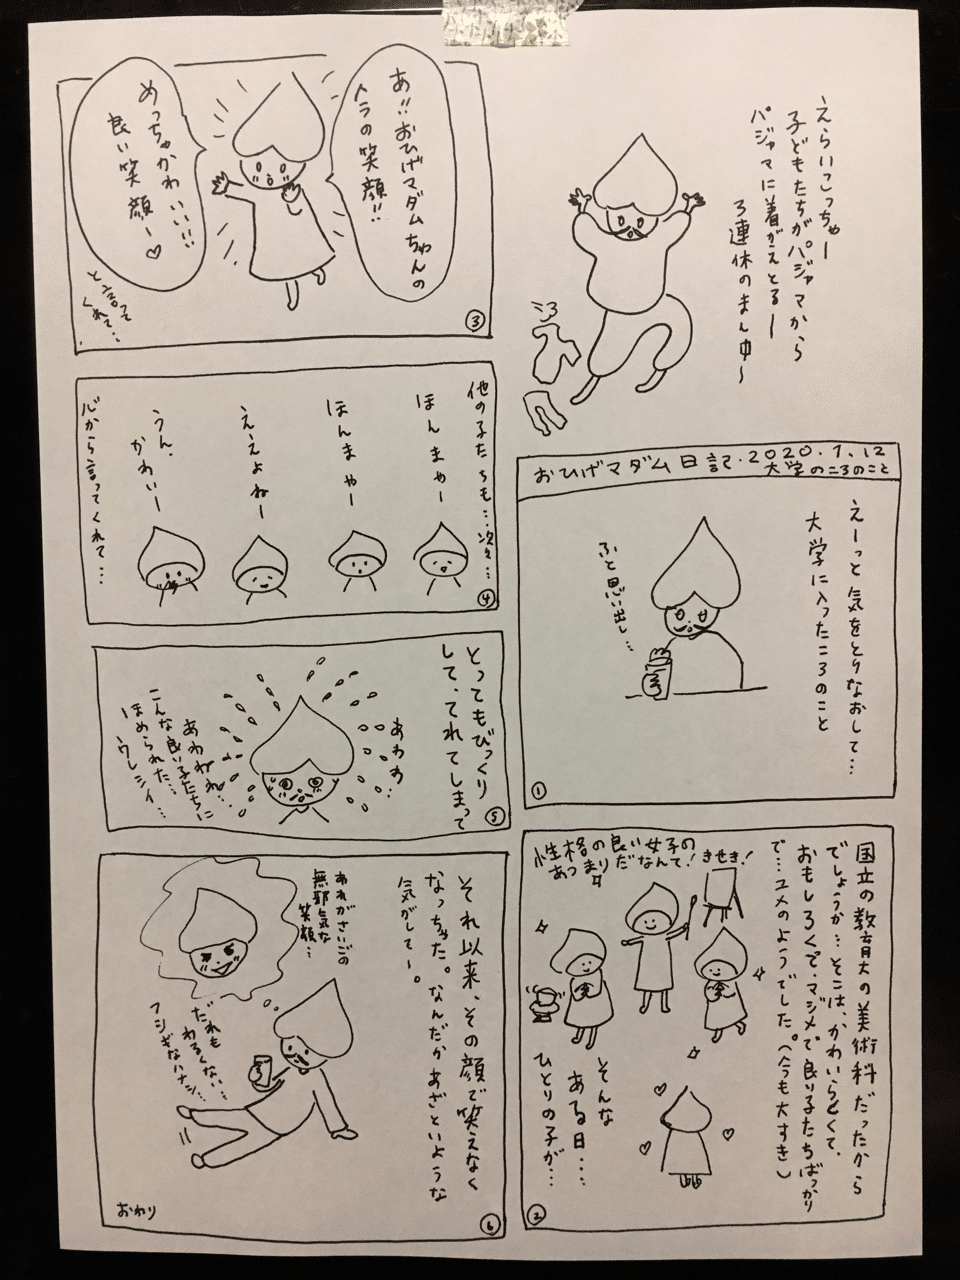 えらいこっちゃー
子どもたちがパジャマから
パジャマに着がえとるー
3連休のまん中〜
おひげマダム日記・2020.1.12
大学のころのこと
えーっと気をとりなおして…
大学に入ったころのこと
ふと思い出し…
①
国立の教育大の美術科だったから
でしょうか…そこは、かわいらしくて、
おもしろくて、マジメで良い子たちばっかり
で…ユメのようでした。(今も大すき)
性格の良い女子の
あつまりだなんて!
きせき!
そんな
ある日…
ひとりの子が…
②
あ!!おひげマダムちゃんの
トラの笑顔!!
めっちゃかわいい!!!
良い笑顔ー♡
と言って
くれて…
③
他の子たちも…次々…
ほんまやー
ほんまやー
ええよねー
うん、
かわいー
心から言ってくれて…
④
とってもびっくり
して、てれてしまって
あわわ…
あわわわ…
こんな良い子たちに
ほめられた…
ウレシイ…
⑤
それ以来、その顔で笑えなく
なっちゃた。なんだかあざといような
気がして〜。
あれがさいごの
無邪気な
笑顔…
だれも
わるくない…
フシギなハナシ…
おわり
⑥